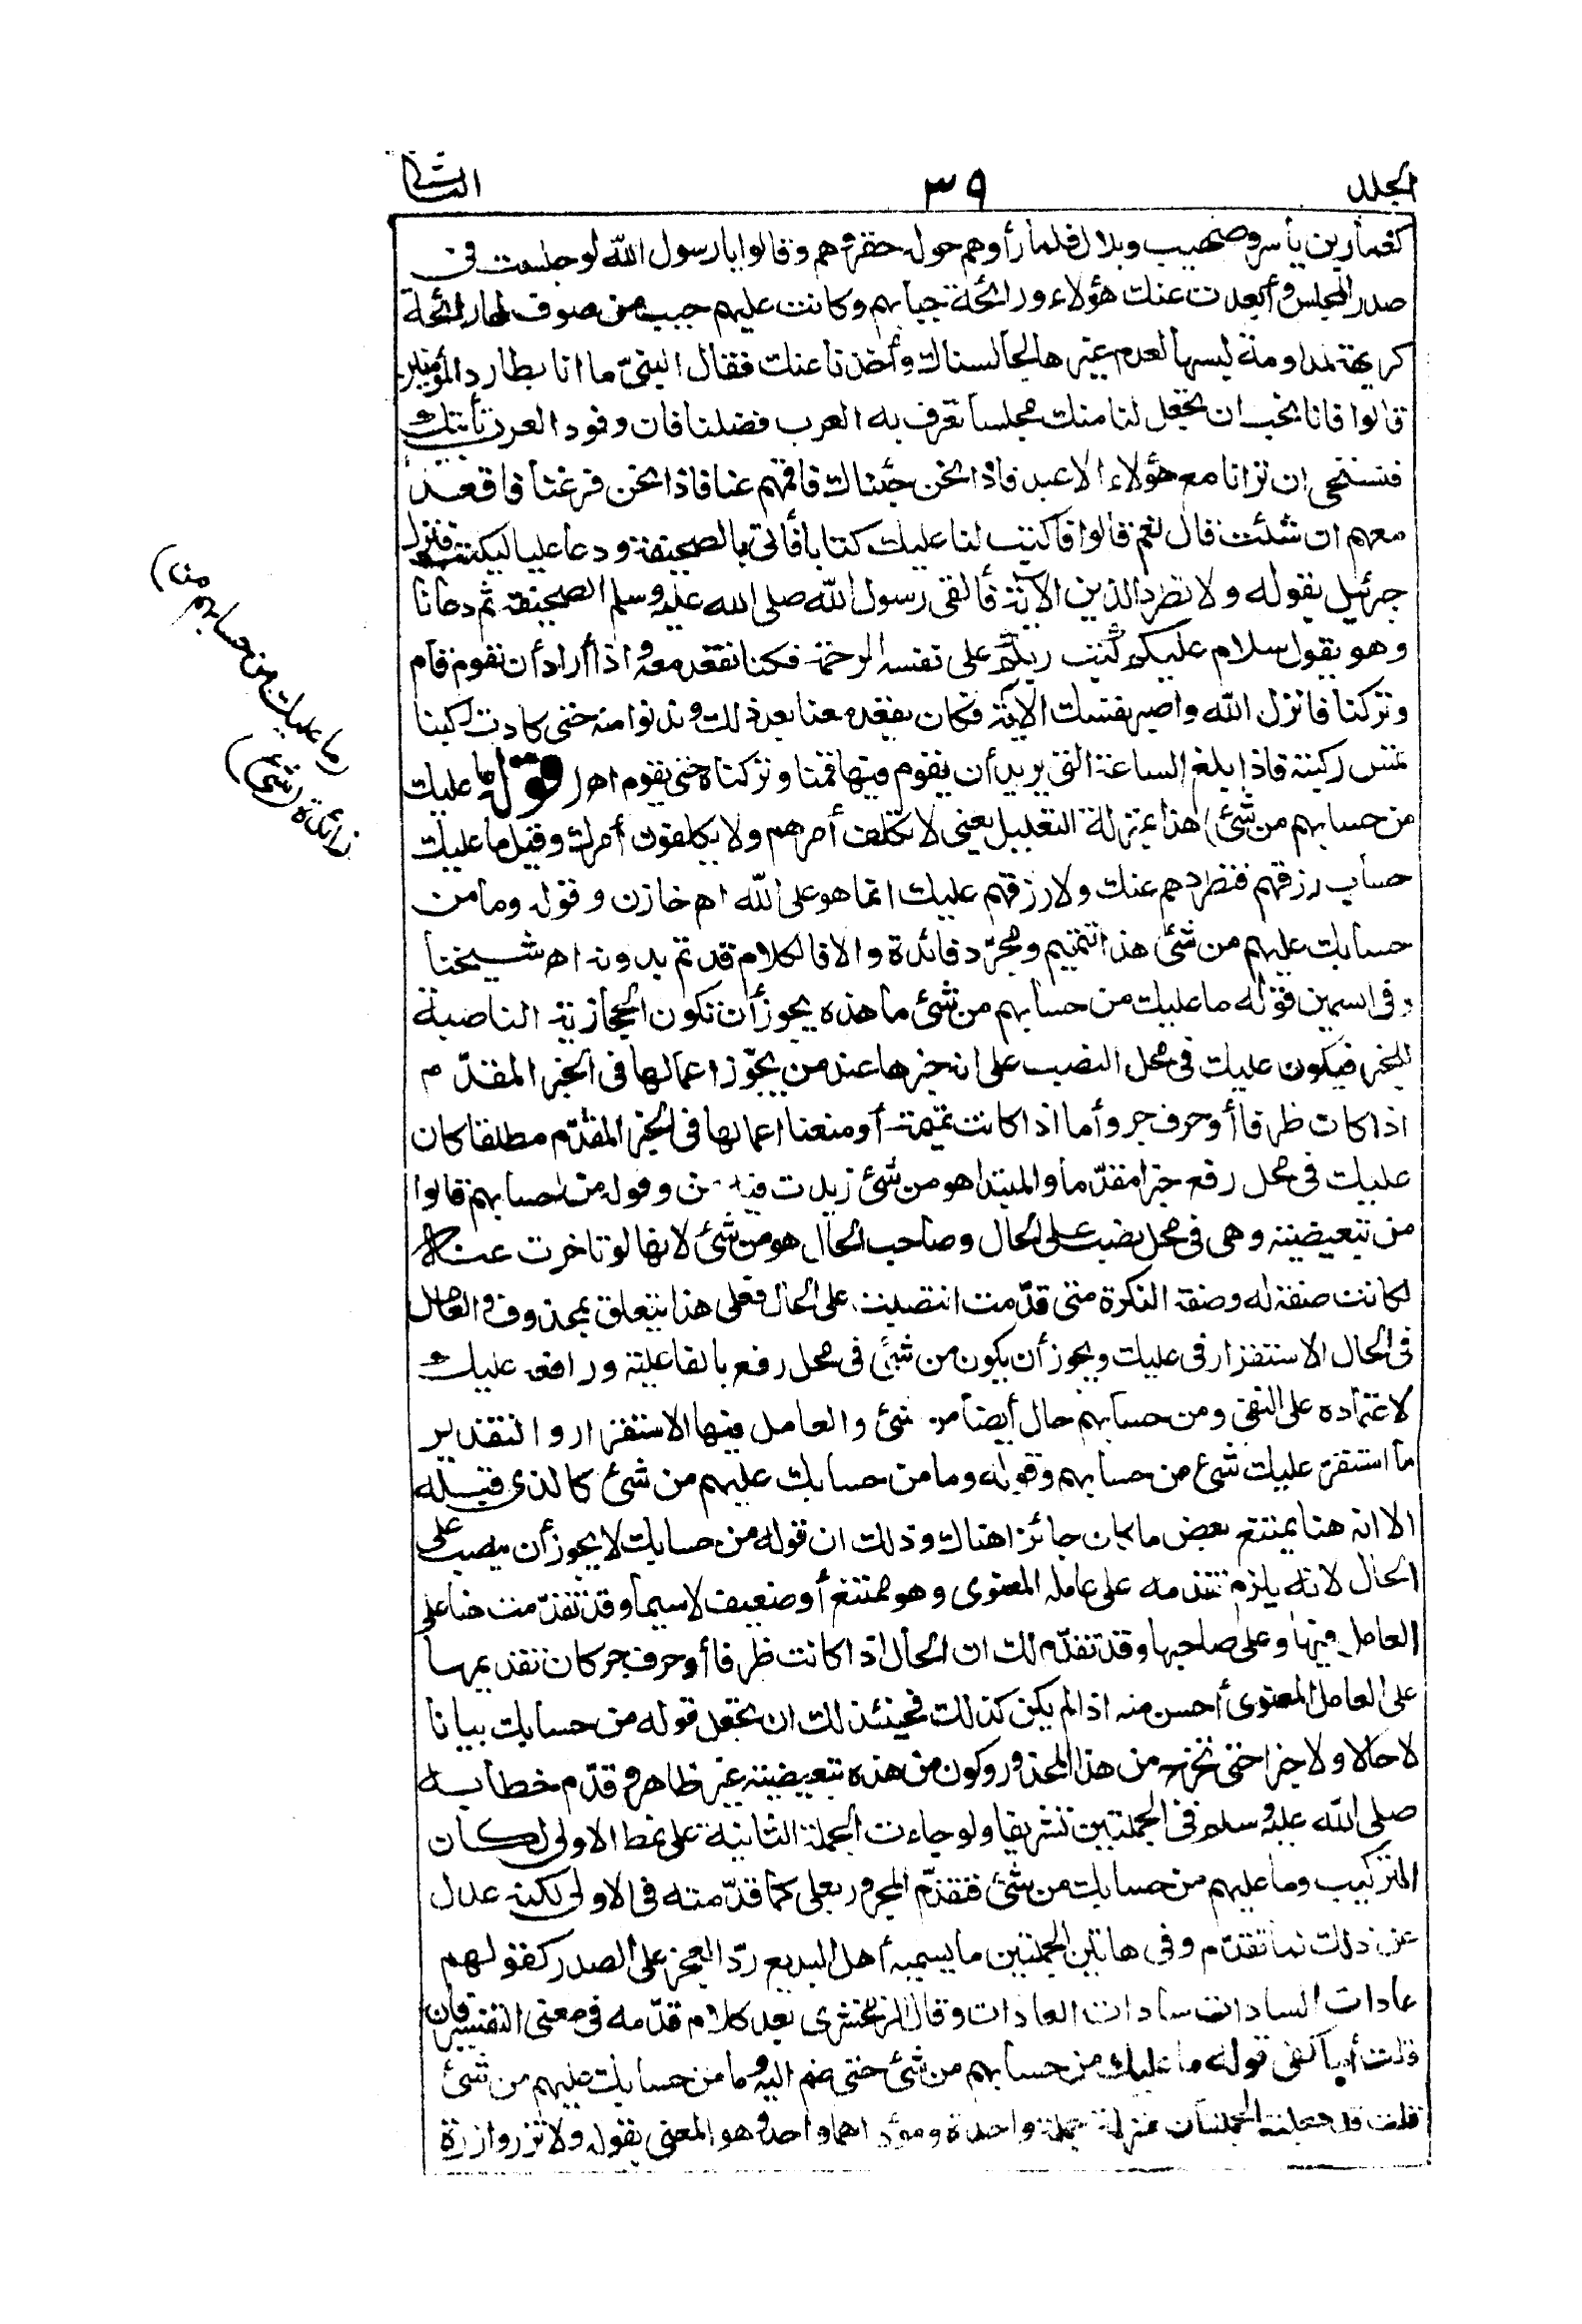 الجلد ٣٩ الثانى
كعمار بن ياسر وصهيب وبلال فلما رأوهم حوله حقروهم وقالوا يا رسول الله لو جلست فى
صدر المجلس وأبعدت عنك هؤلاء ورائحة جبابهم وكانت عليهم جبب من صوف لها رائحة
كريهة لمداومة لبسها لعدم غيرها لجالسناك وأخذنا عنك فقال النبىّ ما انا بطارد المؤمنين
قالوا فانا نحب ان تجعل لنا منك مجلسا تعرف به العرب فضلنا فان وفود العرب تأتيك
فنستحى ان ترانا مع هؤلاء الاعبد فاذا نحن جئناك فاقمهم عنا فاذا نحن فرغنا فاقعد
معهم ان شئت قال نعم قالوا فاكتب لنا عليك كتابا فأتى بالصحيفة ودعا عليا ليكتب فنزل
جبرئيل بقوله ولا تطرد الذين الآية فألقى رسول الله صلى الله عليه وسلم الصحيفة ثم دعانا
وهو يقول سلام عليكم كتب ربكم على نفسه الرحمة فكنا نقعد معه واذا أراد أن يقوم قام
وتركنا فانزل الله واصبر نفسك الآية فكان يقعد معنا بعد ذلك وندنوا منه حتى كادت ركبنا
تمس ركبته فاذا بلغ الساعة التى يريد أن يقوم فيها قمنا وتركناه حتى يقوم اهـ (قوله ما عليك
من حسابهم من شئ) هذا بمنزلة التعليل يعنى لا تكلف أمرهم ولا يكلفون أمرك وقيل ما عليك
حساب رزقهم فتطردهم عنك ولا رزقهم عليك انما هو على الله اهـ خازن وقوله وما من
حسابك عليهم من شئ هذا تتميم ومجرّد فائدة والا فالكلام قد تم بدونه اهـ شيخنا
وفى السمين قوله ما عليك من حسابهم من شئ ما هذه يجوز أن تكون الحجازية الناصبة
للخبر فيكون عليك فى محل النصب على انه خبرها عند من يجوّز اعمالها فى الخبر المقدّم
اذا كان ظرفا أو حرف جر وأما اذا كانت تميمة أو منعنا اعمالها فى الخبر المقدّم مطلقا كان
عليك فى محل رفع خبرا مقدّما والمبتدا هو من شئ زيدت فيه من وقوله من حسابهم قالوا
من تبعيضية وهى فى محل نصب على الحال وصاحب الحال هو من شئ لانها لو تاخرت عنه
لكانت صفة له وصفة النكرة متى قدّمت انتصبت على الحال فعلى هذا يتعلق بمحذوف والعامل
فى الحال الاستقرار فى عليك ويجوز أن يكون من شئ فى محل رفع بالفاعلية ورافعه عليك
لاعتماده على النفى ومن حسابهم حال أيضا من شئ والعامل فيها الاستقرار والتقدير
ما استقرّ عليك شئ من حسابهم وقوله وما من حسابك عليهم من شئ كالذى قبله
الا انه هنا يمتنع بعض ما كان جائزا هناك وذلك ان قوله من حسابك لا يجوز أن ينصب على
الحال لانه يلزم تقدمه على عامله المعنوى وهو ممتنع أو ضعيف لا سيما وقد تقدّمت هنا على
العامل فيها وعلى صاحبها وقد تقدّم لك ان الحال اذا كانت ظرفا أو حرف جر كان تقديمها
على العامل المعنوى أحسن منه اذا لم يكن كذلك فحينئذ لك ان تجعل قوله من حسابك بيانا
لا حالا ولا خبرا حتى تخرج من هذا المحذور وكون من هذه تبعيضية غير ظاهر وقدّم خطابه
صلى الله عليه وسلم فى الجملتين تشريفا ولو جاءت الجملة الثانية على نمط الاولى لكان
التركيب وما عليهم من حسابك من شئ فتقدّم المجرور بعلى كما قدّمته فى الاولى لكنه عدل
عن ذلك لما تقدّم وفى هاتين الجملتين ما يسميه أهل البديع ردّ العجز على الصدر كقولهم
عادات السادات سادات العادات وقال الزمخشرى بعد كلام قدّمه فى معنى التفسير فان
قلت أما كفى قوله ما عليك من حسابهم من شئ حتى ضم اليه وما من حسابك عليهم من شئ
قلت قد جعلت الجملتان بمنزلة جملة واحدة ومؤداهما واحد وهو المعنى بقوله ولا تزر وازرة
(ما عليك من حسابهم من)
زائدة (شئ)